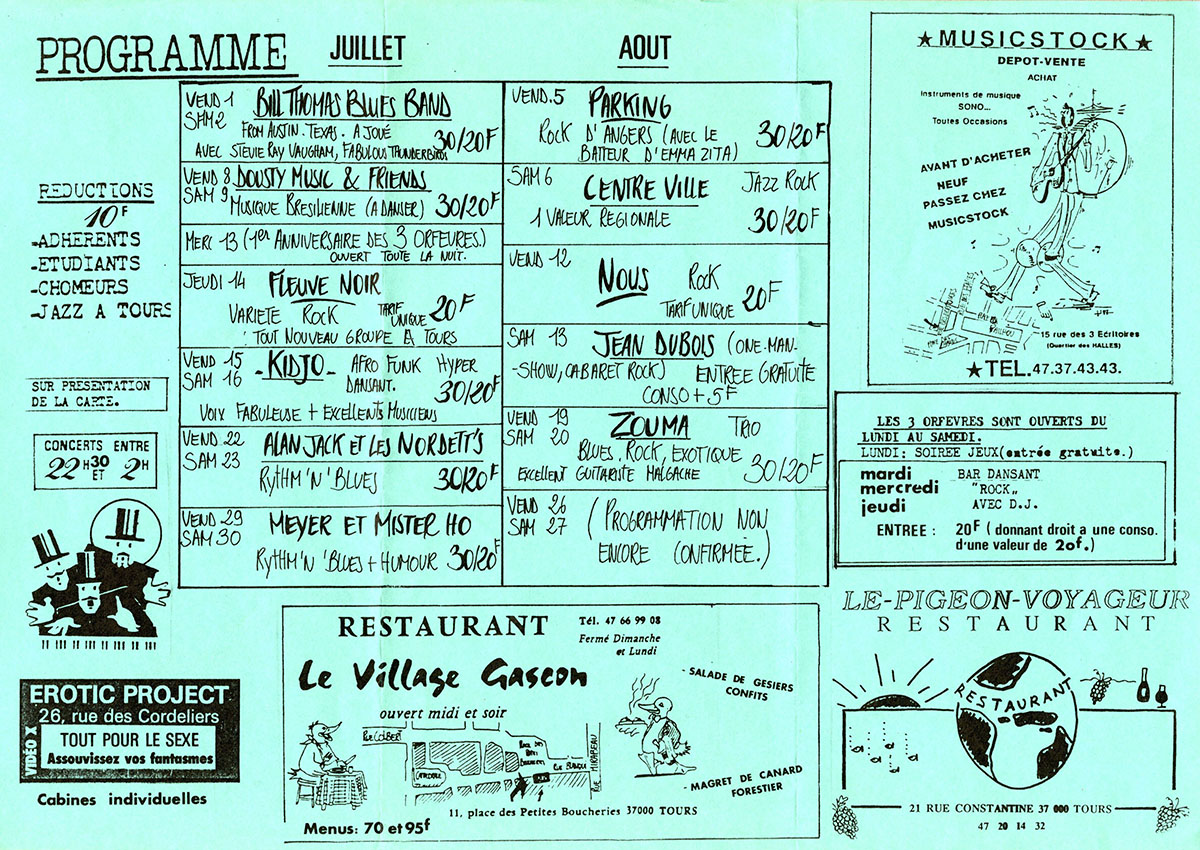 PROGRAMME
JUILLET
AOUT
REDUCTIONS
10F
-ADHERENTS
-ETUDIANTS
-CHOMEURS
-JAZZ A TOURS
SUR PRESENTATION
DE LA CARTE.
CONCERTS ENTRE
22H30 ET 2H
VEND 1
SAM 2
BILL THOMAS BLUES BAND
FROM AUSTIN. TEXAS. A JOUÉ
AVEC STEVIE RAY VAUGHAM, FABULOUS THUNDERBIRDS
30/20F
VEND 8
SAM 9
DOUSTY MUSIC & FRIENDS
MUSIQUE BRESILIENNE (A DANSER) 30/20F
MERC 13 (1er ANNIVERSAIRE DES 3 ORFEURES.)
OUVERT TOUTE LA NUIT.
JEUDI 14
FLEUVE NOIR
VARIETE ROCK TARIF UNIQUE 20F
TOUT NOUVEAU GROUPE A TOURS
VEND 15
SAM 16
-KIDJO-
AFRO FUNK HYPER
DANSANT.
30/20F
VOIX FABULEUSE + EXCELLENTS MUSICIENS
VEND 22
SAM 23
ALAN JACK ET LES NORDETT'S
RYTHM'N'BLUES
30/20F
VEND 29
SAM 30
MEYER ET MISTER HO
RYTHM'N'BLUES + HUMOUR 30/20F
VEND.5
PARKING
ROCK D'ANGERS (AVEC LE
BATTEUR D'EMMA ZITA)
30/20F
SAM 6
CENTRE VILLE
JAZZ ROCK
1 VALEUR REGIONALE
30/20F
VEND 12
NOUS
ROCK
TARIF UNIQUE 20F
SAM 13
JEAN DUBOIS (ONE-MAN-
-SHOW, CABARET ROCK) ENTREE GRATUITE
CONSO + 5F
VEND 19
SAM 20
ZOUMA TRIO
BLUES. ROCK, EXOTIQUE
EXCELLENT GUITARISTE MALGACHE
30/20F
VEND 26
SAM 27
(PROGRAMMATION NON
ENCORE CONFIRMEE.)
★ MUSICSTOCK ★
DEPOT-VENTE
ACHAT
Instruments de musique
SONO...
Toutes Occasions
AVANT D'ACHETER
NEUF
PASSEZ CHEZ
MUSICSTOCK
15 rue des 3 Ecritoires
(Quartier des HALLES)
★TEL.47.37.43.43.
LES 3 ORFEVRES SONT OUVERTS DU
LUNDI AU SAMEDI.
LUNDI: SOIREE JEUX(entrée gratuite.)
mardi
mercredi
jeudi
BAR DANSANT
"ROCK„
AVEC D.J.
ENTREE : 20F ( donnant droit a une conso.
d'une valeur de 20f.)
EROTIC PROJECT
26, rue des Cordeliers
VIDEO X
TOUT POUR LE SEXE
Assouvissez vos fantasmes
Cabines individuelles
RESTAURANT
Tél. 47 66 99 08
Fermé Dimanche
et Lundi
Le Village Gascon
ouvert midi et soir
- SALADE DE GESIERS
CONFITS
RUE COLBERT
RUE MIRABEAU
- MAGRET DE CANARD
FORESTIER
11, place des Petites Boucheries 37000 TOURS
Menus: 70 et 95f
LE-PIGEON-VOYAGEUR
RESTAURANT
RESTAURANT
21 RUE CONSTANTINE 37 000 TOURS
47 20 14 32